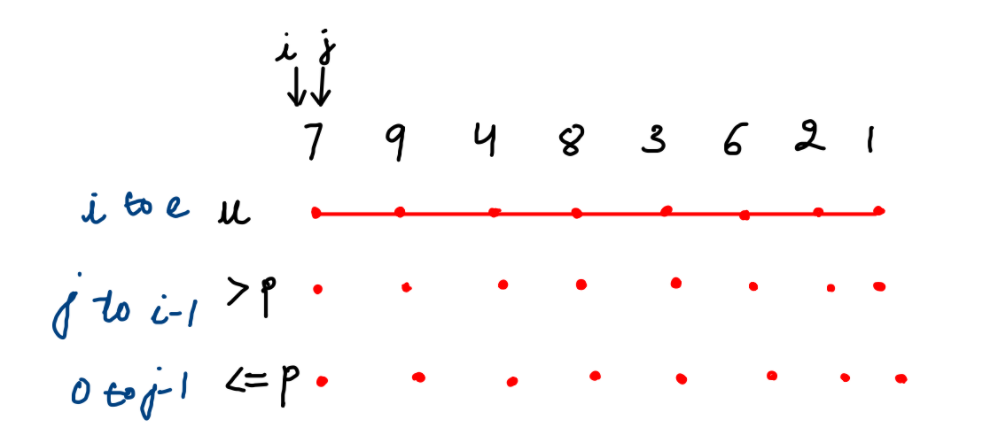 i j
7 9 4 8 3 6 2 1
i to e u
j to i-1 >p
0 to j-1 <=p